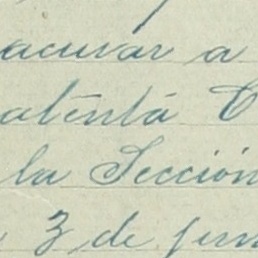 acusar a
atenta C
la Sección
3 de jun